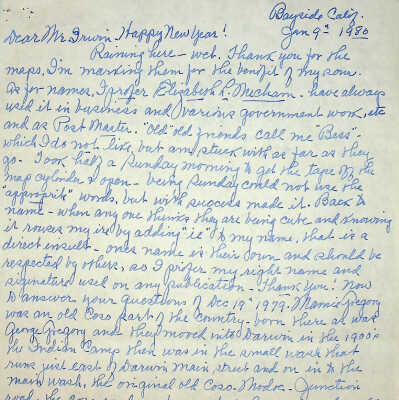 Bayside Calif.
Jan 9th 1980
Dear Mr. Irwin - Happy New Year!
Raining here - wet. Thank you for the
maps, I'm marking them for the benefit of my sons.
As for names, I prefer Elizabeth L. Mecham. have always
used it in business and various government work, etc
and as Post Master. "Old" old friends call me "Bess" -
which I do not like, but am stuck with as far as they
go. I took half a Sunday morning to get the tape off the
map cylinder & open - being Sunday could not use the
"approprite" words, but with success made it. Back to
name - when any one thinks they are being cute and knowing
it rouses my ire by adding "ie" to my name, that is a
direct insult - ones name is their own and should be
respected by others, so I prefer my right name and
signature used on any publication - Thank you! Now
to answer your questions of Dec 19th 1979. Mamie Gregory
was an old Coso part of the country - born there as was
George Gregory and they mooved into Darwin in the 1900's
the Indian Camp then was in the small wash that
runs just east of Darwin main street and on in to the
main wash, the original old Coso - Modoc - Junction